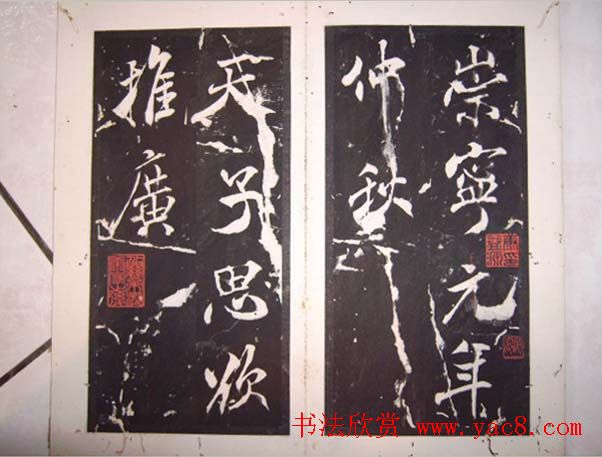 崇寧元年
仲秋
天子思欲
推廣
书法欣赏 www.yac8.com